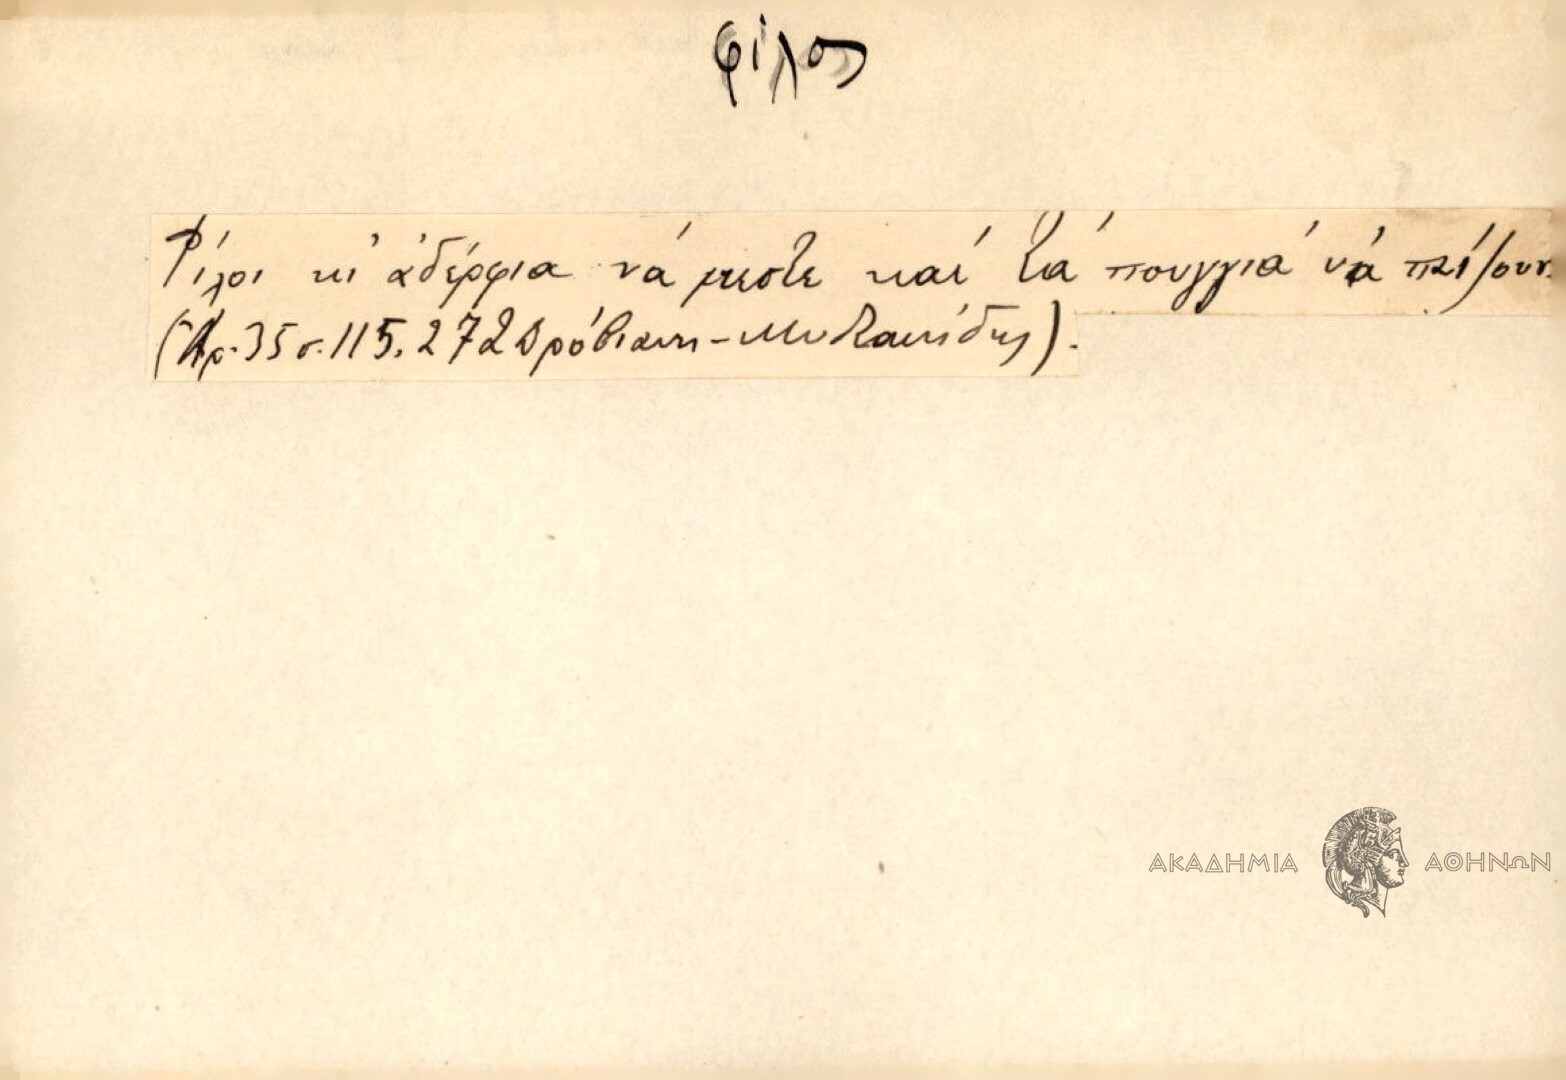 φίλος
Φίλοι κι' ἀδέρφια νά μεστε καί τά πουγγιά νά παίζουν.
(Ἀρ. 35 σ. 115. 272 Δρόβιανη - Μυστακίδης).
ΑΚΑΔΗΜΙΑ ΑΘΗΝΩΝ